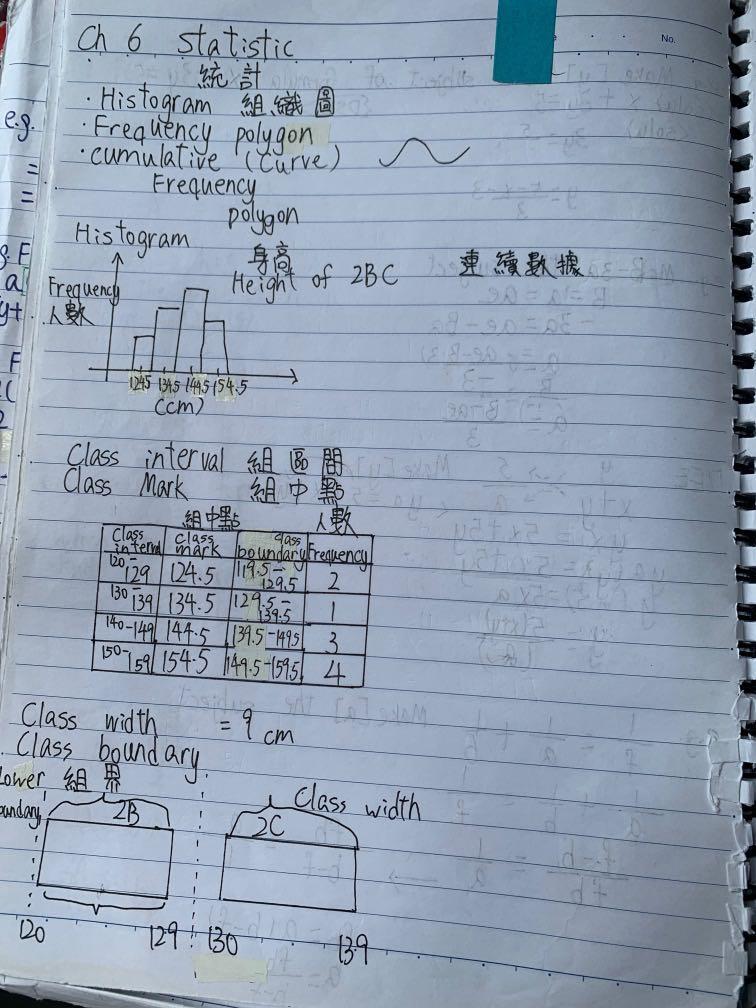 Ch 6 Statistic
統計
· Histogram 組織圖
· Frequency polygon
· cumulative (Curve)
Frequency
polygon
Histogram
身高
Height of 2BC 連續數據
Frequency
人數
124.5 134.5 144.5 154.5
(cm)
Class interval 組區間
Class Mark 組中點
組中點 人數
class interval class mark class boundary Frequency
120-129 124.5 119.5-129.5 2
130-139 134.5 129.5-139.5 1
140-149 144.5 139.5-149.5 3
150-159 154.5 149.5-159.5 4
Class width = 9 cm
Class boundary
Lower 組界
2B
Class width
2C
120 129 130 139
e.g.
=
=
No.